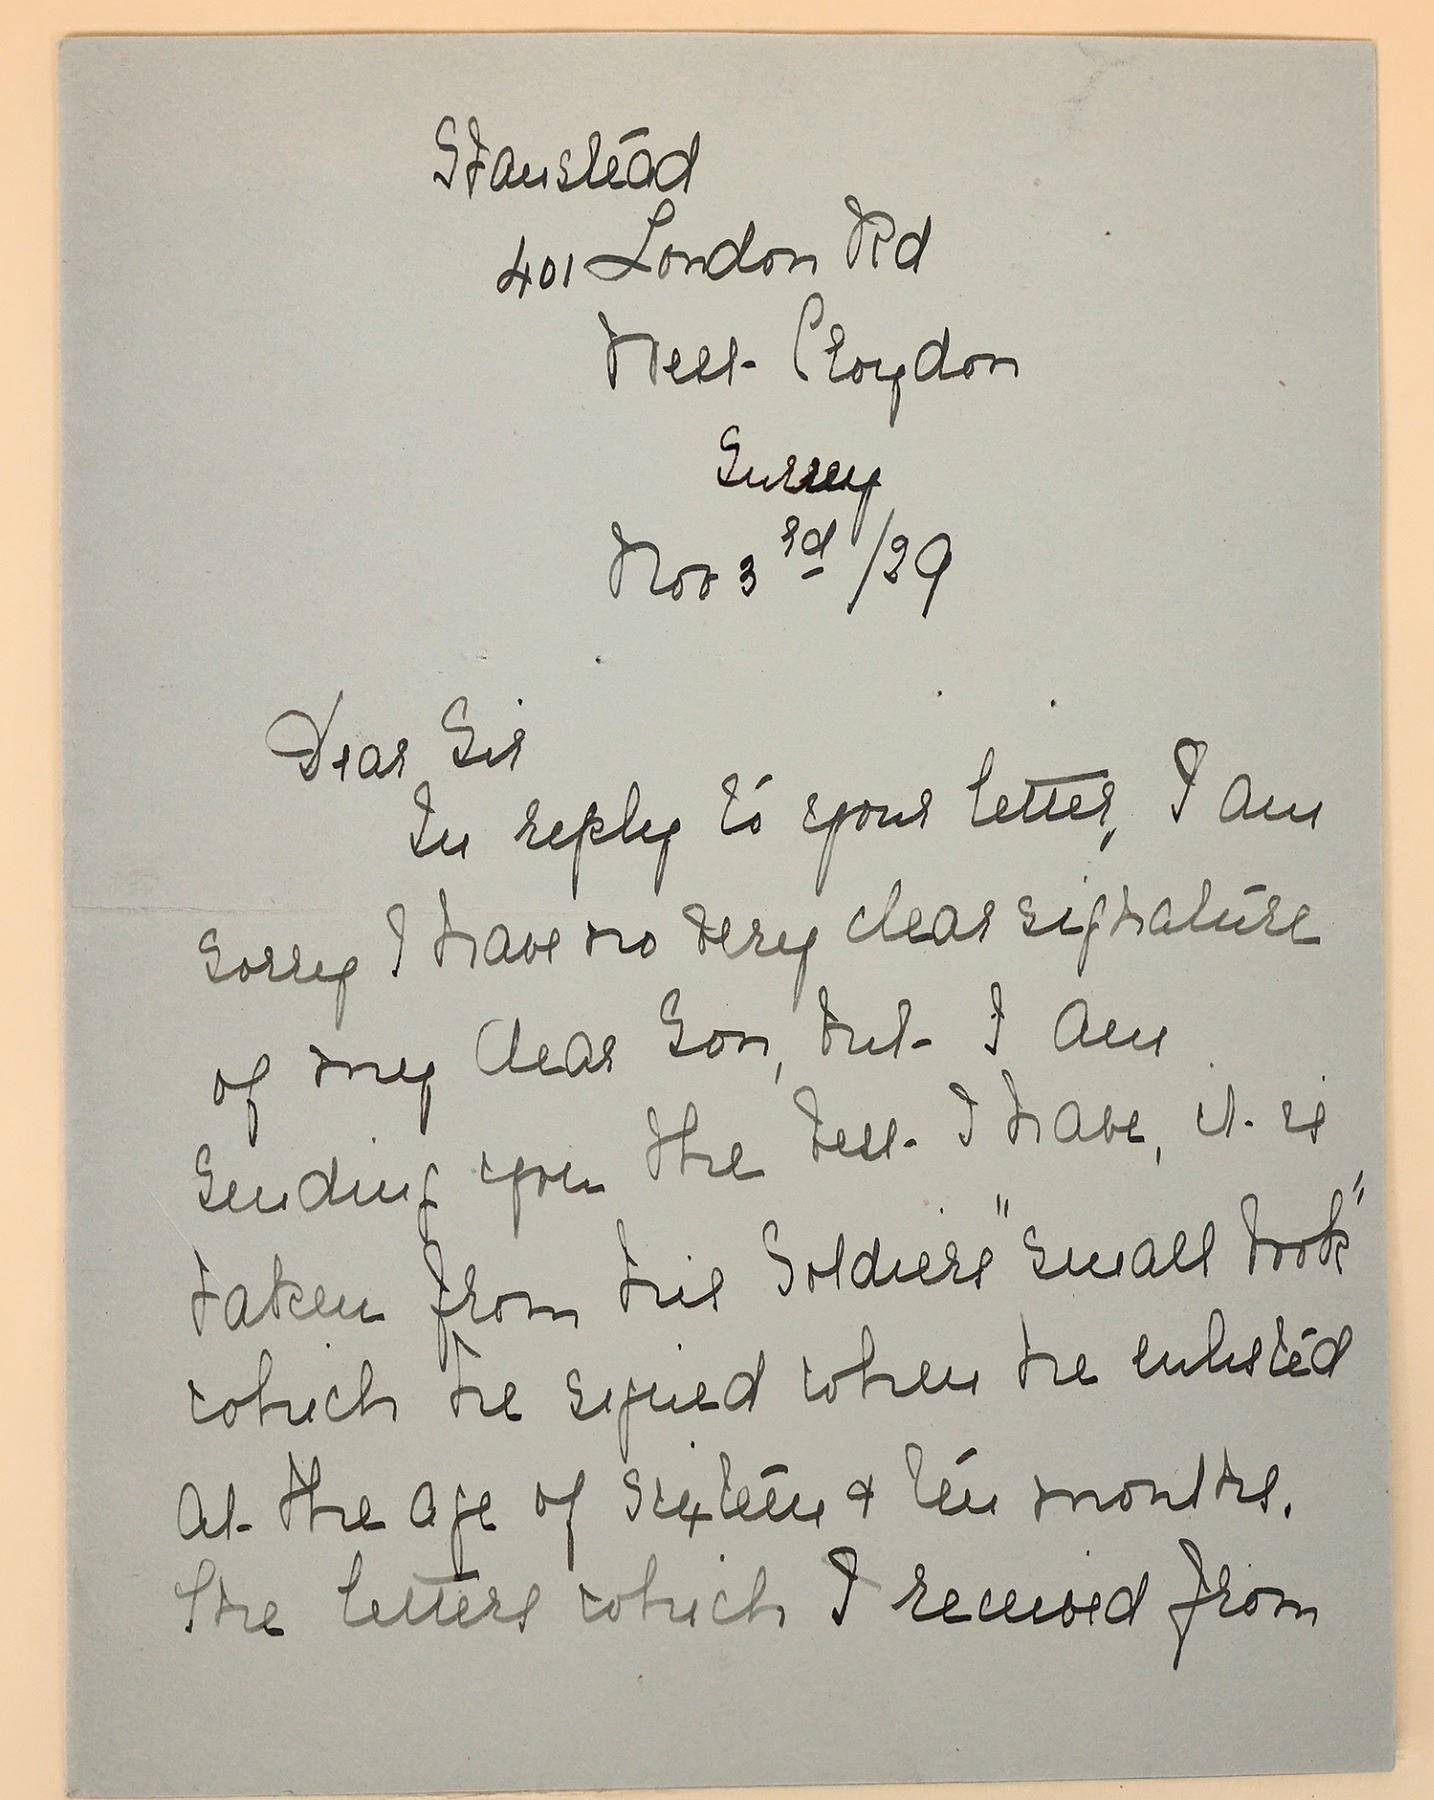 Stanstead
401 London Rd
West Croydon
Surrey
Nov 3rd /29
Dear Sir
In reply to your letter, I am
sorry I have no very clear signature
of my dear Son, but I am
sending you the best I have, it is
taken from his Soldiers "small book"
which he signed when he enlisted
at the age of sixteen & ten months.
The letters which I received from